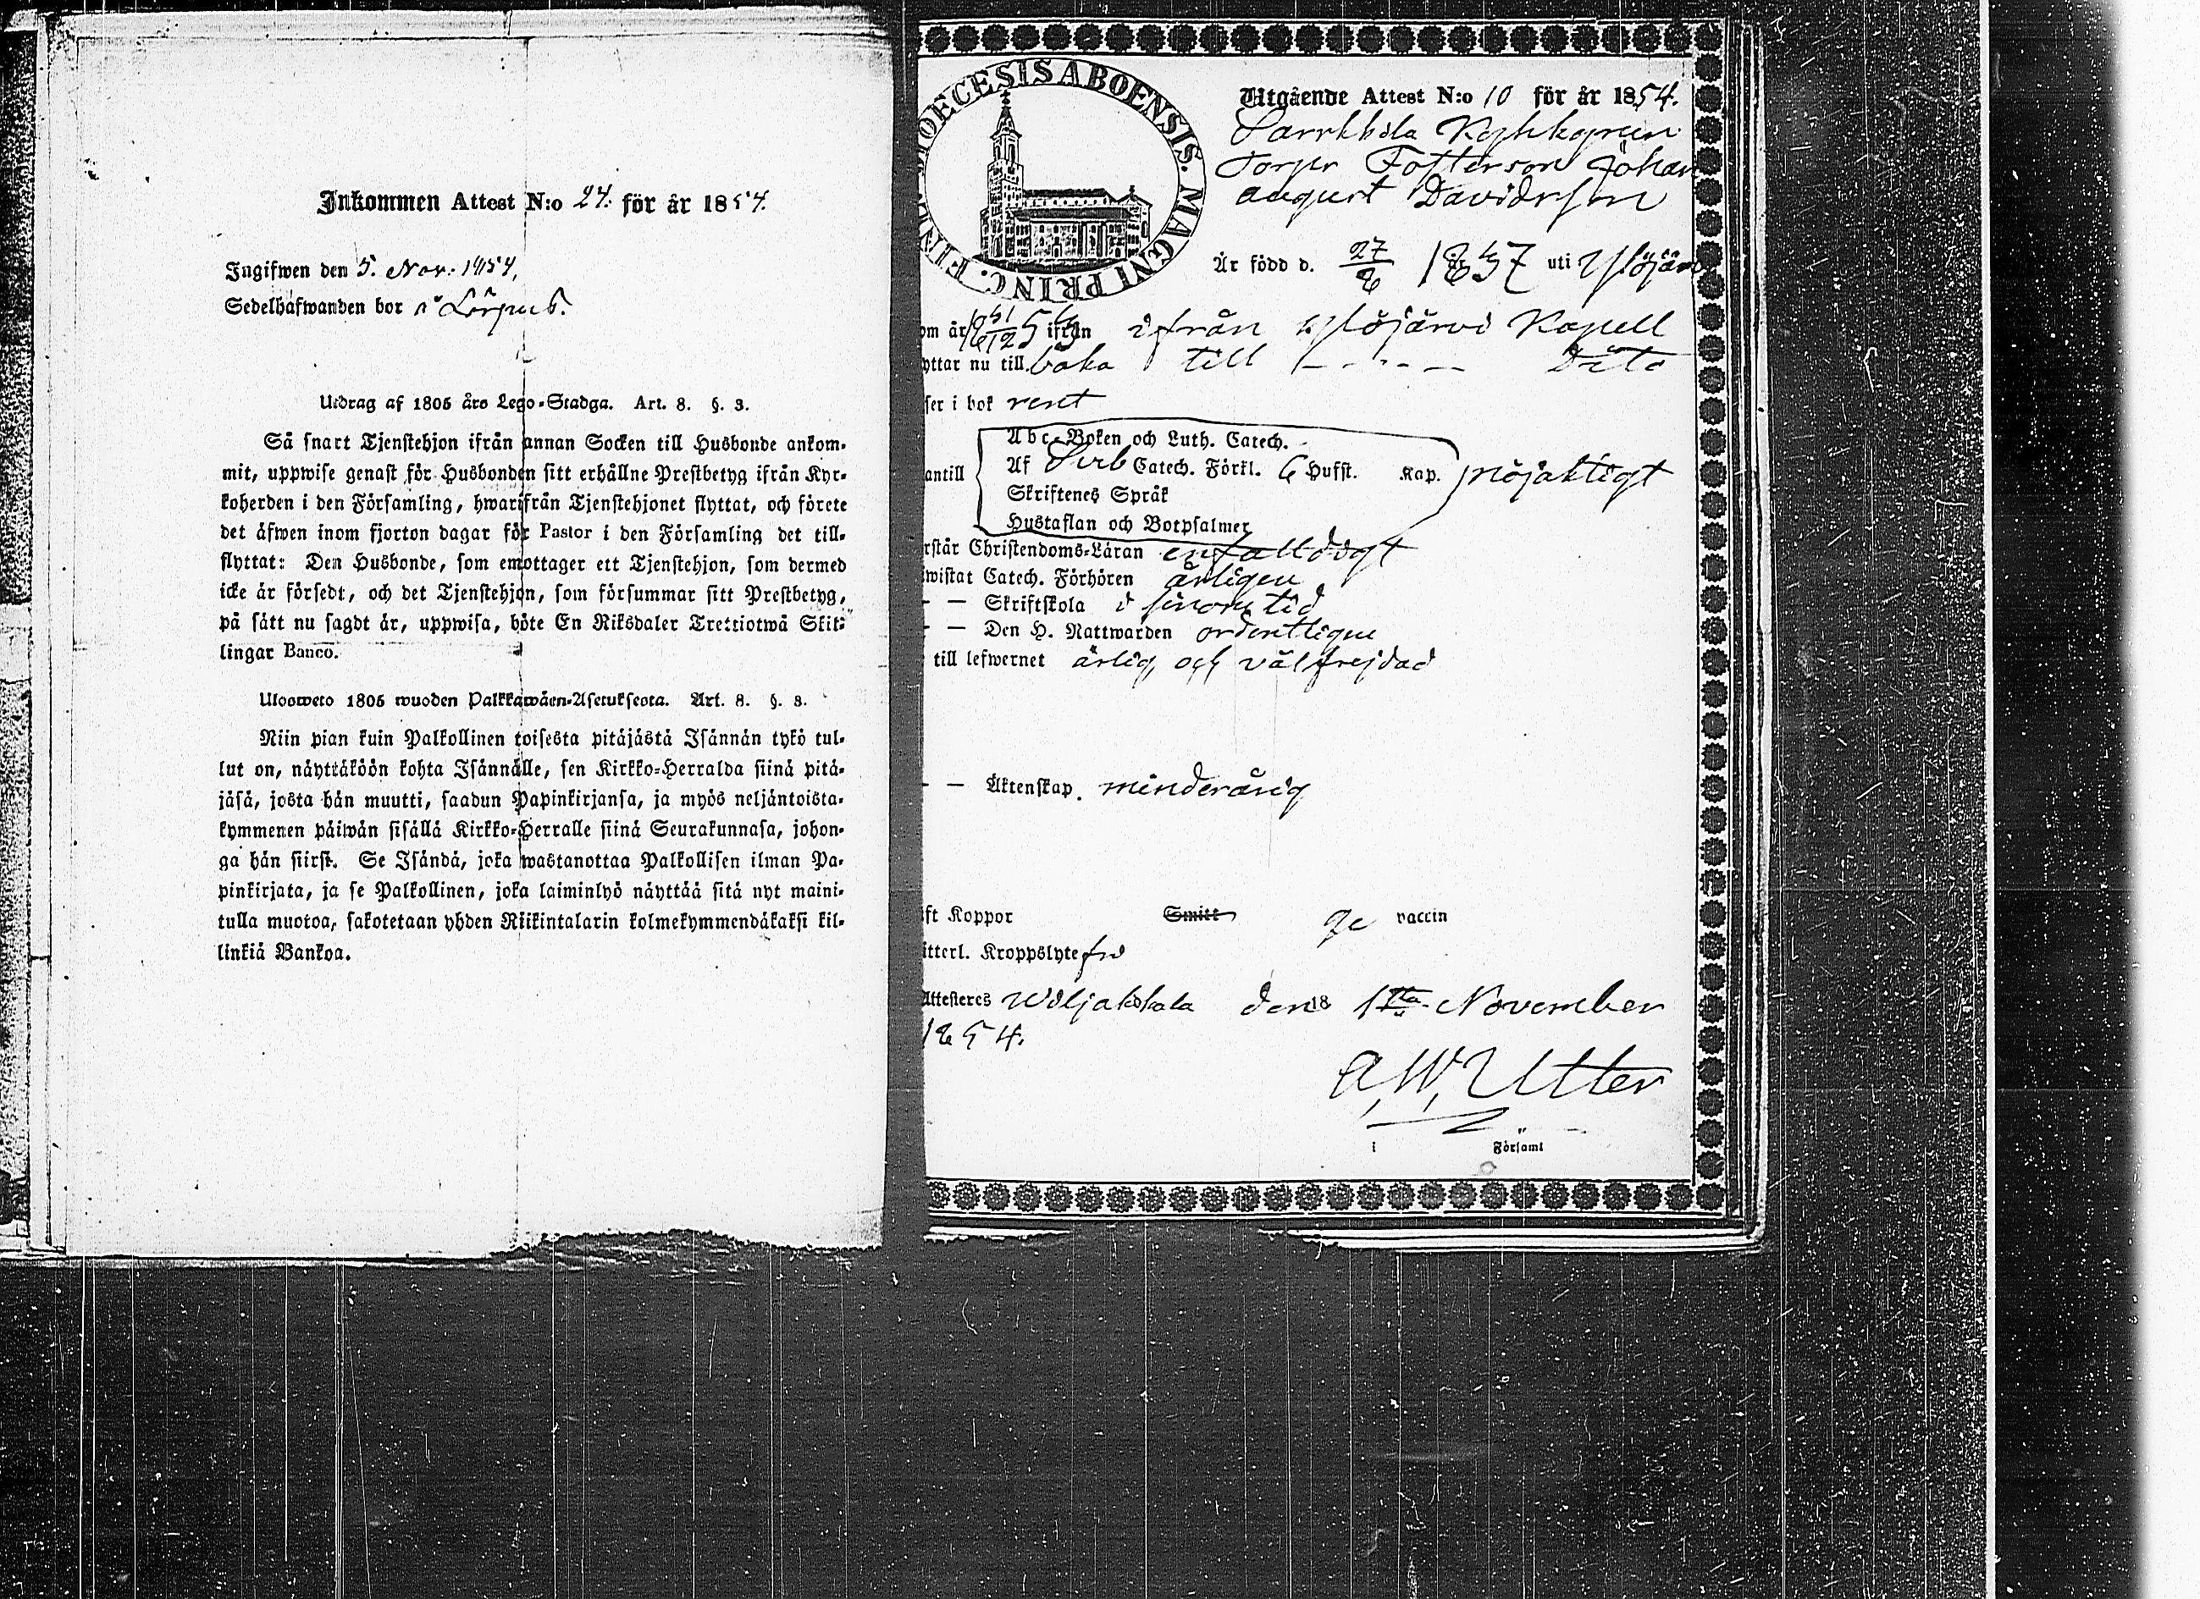 Inkommen Attest N:o 24. för år 1854.
Ingifwen den 5. Nov. 1854,
Sedelhafwanden bor å
Utdrag af 1805 års Lego-Stadga. Art. 8. §. 3.
Så snart Tjenstehjon ifrån annan Socken till Husbonde ankom-
mit, uppwise genast för Husbonden sitt erhållne Prestbetyg ifrån Kyr-
koherden i den Församling, hwarifrån Tjenstehjonet flyttat, och förete
det äfwen inom fjorton dagar för Pastor i den Församling det till-
flyttat: Den Husbonde, som emottager ett Tjenstehjon, som dermed
icke är försedt, och det Tjenstehjon, som försummar sitt Prestbetyg,
på sätt nu sagdt är, uppwisa, böte En Riksdaler Trettiotwå Skil-
lingar Banco.
Ulosweto 1805 wuoden Palkkawäen-Asetuksesta. Art. 8. §. 3.
Niin pian kuin Palkollinen toisesta pitäjästä Isännän tykö tul-
lut on, näyttäköön kohta Isännälle, sen Kirkko-Herralda siinä pitä-
jäsä, josta hän muutti, saadun Papinkirjansa, ja myös neljäntoista-
kymmenen päiwän sisällä Kirkko-Herralle siinä Seurakunnasa, johon-
ga hän siirst. Se Isändä, joka wastanottaa Palkollisen ilman Pa-
pinkirjata, ja se Palkollinen, joka laiminlyö näyttää sitä nyt maini-
tulla muotoa, sakotetaan yhden Riikintalarin kolmekymmendäkaksi kil-
linkiä Bankoa.
DIOECESIS ABOENSIS. MAGNI PRINC. FINL.
Utgående Attest N:o 10 för år 1854.
Torpr Fosterson Johan
august Davidsson
Är född d. 27/8 1837 uti Ylöjärvi
om år ifrån ifrån Ylöjärvi Kapell
yttar nu till baka till Dito
ser i bok rent
Abc-Boken och Luth. Catech.
antill Af Catech. Förkl. 6 Hufst. Kap. nöjaktigt
Skriftenes Språk
Hustaflan och Botpsalmer
rstår Christendoms-Läran enfalldigt
wistat Catech. Förhören årligen
— — Skriftskola i sinom tid
— — Den H. Nattwarden ordentligen
till lefwernet ärlig och välfrejdad
— — Äktenskap. minderårig
ft Koppor Smitt ge vaccin
itterl. Kroppslyte fri
Attesteres Wiljakkala den 18 1sta November
1854.
A. W. Utter
i Församl